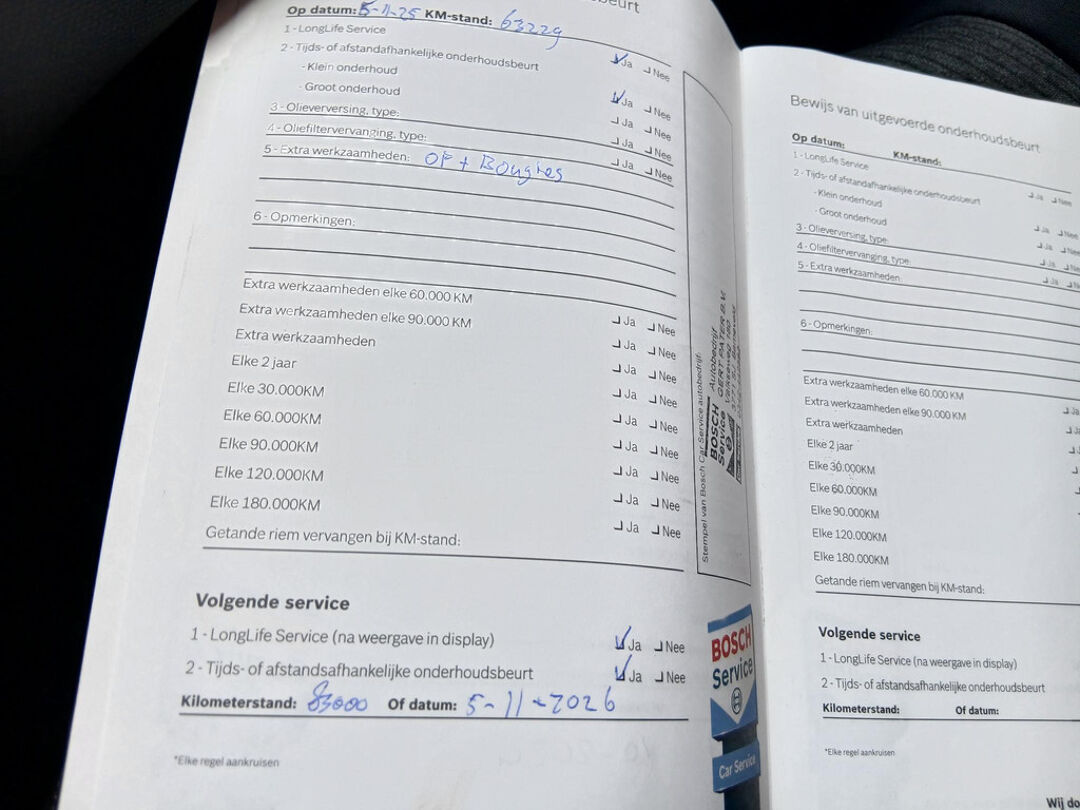 beurt
Op datum: 5-11-25 KM-stand: 63229
1 - LongLife Service Ja Nee
2 - Tijds- of afstandafhankelijke onderhoudsbeurt
- Klein onderhoud Ja Nee
- Groot onderhoud Ja Nee
3 - Olieverversing, type: Ja Nee
4 - Oliefiltervervanging, type: Ja Nee
5 - Extra werkzaamheden: OF + Bougies
6 - Opmerkingen:
Extra werkzaamheden elke 60.000 KM Ja Nee
Extra werkzaamheden elke 90.000 KM Ja Nee
Extra werkzaamheden Ja Nee
Elke 2 jaar Ja Nee
Elke 30.000KM Ja Nee
Elke 60.000KM Ja Nee
Elke 90.000KM Ja Nee
Elke 120.000KM Ja Nee
Elke 180.000KM Ja Nee
Getande riem vervangen bij KM-stand:
Volgende service
1 - LongLife Service (na weergave in display) Ja Nee
2 - Tijds- of afstandsafhankelijke onderhoudsbeurt Ja Nee
Kilometerstand: 83000 Of datum: 5-11-2026
*Elke regel aankruisen
Stempel van Bosch Car Service autobedrijf:
BOSCH Autobedrijf
Service GERT PATER B.V.
BOSCH
Service
Car Service
Bewijs van uitgevoerde onderhoudsbeurt
Op datum: KM-stand:
1 - LongLife Service Ja Nee
2 - Tijds- of afstandafhankelijke onderhoudsbeurt
- Klein onderhoud Ja Nee
- Groot onderhoud Ja Nee
3 - Olieverversing, type: Ja
4 - Oliefiltervervanging, type: Ja
5 - Extra werkzaamheden:
6 - Opmerkingen:
Extra werkzaamheden elke 60.000 KM Ja
Extra werkzaamheden elke 90.000 KM Ja
Extra werkzaamheden
Elke 2 jaar
Elke 30.000KM
Elke 60.000KM
Elke 90.000KM
Elke 120.000KM
Elke 180.000KM
Getande riem vervangen bij KM-stand:
Volgende service
1 - LongLife Service (na weergave in display)
2 - Tijds- of afstandsafhankelijke onderhoudsbeurt
Kilometerstand: Of datum:
*Elke regel aankruisen
Wij do